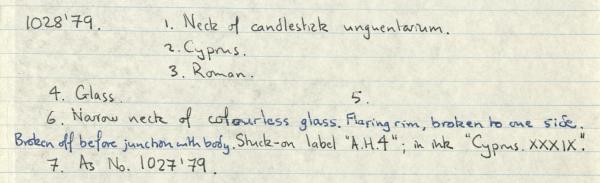 1028'79. 1. Neck of candlestick unguentarium.
2. Cyprus.
3. Roman.
4. Glass. 5.
6. Narrow neck of colourless glass. Flaring rim, broken to one side.
Broken off before junction with body. Stuck-on label "A.H.4"; in ink "Cyprus. XXXIX".
7. As No. 1027'79.